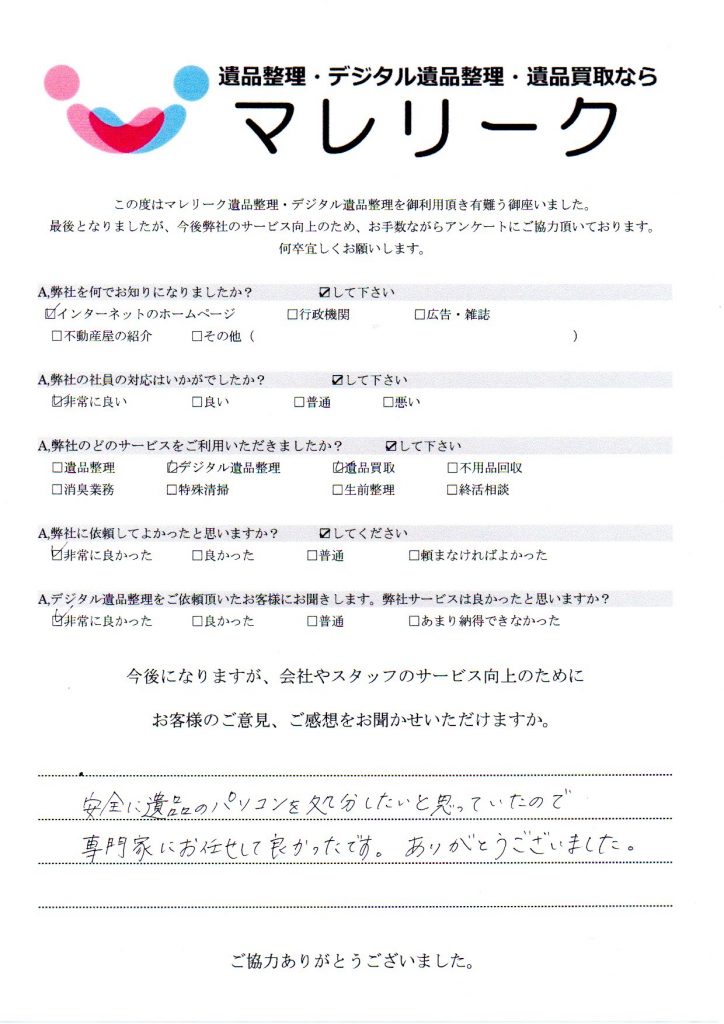 遺品整理・デジタル遺品整理・遺品買取なら
マレリーク
この度はマレリーク遺品整理・デジタル遺品整理を御利用頂き有難う御座いました。
最後となりましたが、今後弊社のサービス向上のため、お手数ながらアンケートにご協力頂いております。
何卒宜しくお願いします。
A,弊社を何でお知りになりましたか？ ☑して下さい
☑インターネットのホームページ □行政機関 □広告・雑誌
□不動産屋の紹介 □その他（ ）
A,弊社の社員の対応はいかがでしたか？ ☑して下さい
☑非常に良い □良い □普通 □悪い
A,弊社のどのサービスをご利用いただきましたか？ ☑して下さい
□遺品整理 ☑デジタル遺品整理 ☑遺品買取 □不用品回収
□消臭業務 □特殊清掃 □生前整理 □終活相談
A,弊社に依頼してよかったと思いますか？ ☑してください
☑非常に良かった □良かった □普通 □頼まなければよかった
A,デジタル遺品整理をご依頼頂いたお客様にお聞きします。弊社サービスは良かったと思いますか？
☑非常に良かった □良かった □普通 □あまり納得できなかった
今後になりますが、会社やスタッフのサービス向上のために
お客様のご意見、ご感想をお聞かせいただけますか。
安全に遺品のパソコンを処分したいと思っていたので
専門家にお任せして良かったです。ありがとうございました。
ご協力ありがとうございました。